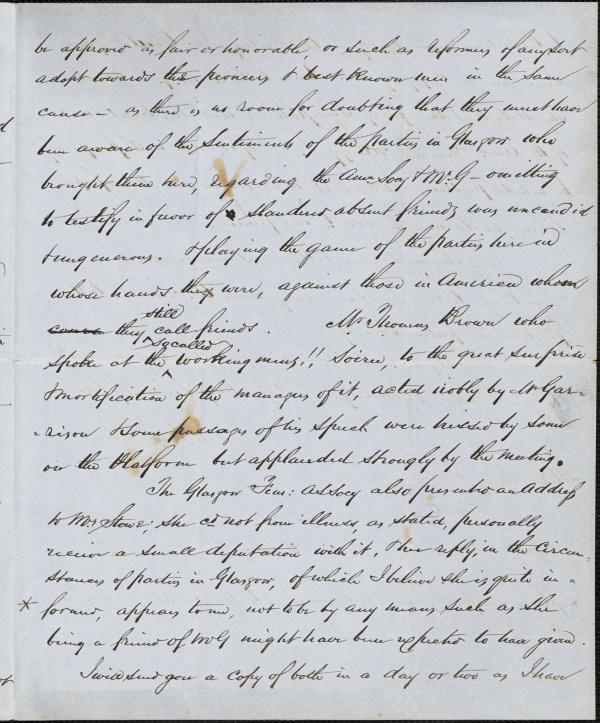 be approved as fair or honorable, or such as reformers of any sort
adopt towards the pioneers & best known men in the same
cause – as there is no room for doubting that they must have
been aware of the sentiments of the parties in Glasgow who
brought them here, regarding the Amn Socy & Mr G – omitting
to testify in favor of slandered absent friends was uncandid
& ungenerous. & playing the game of the parties here in
whose hands they were, against those in America whom
they still call friends. Mr Thomas Brown who
spoke at the so called working mens!! Soiree, to the great surprise
& mortification of the manages of it, acted nobly by Mr Gar-
-rison & some passages of his speech were hissed by some
on the Platform but applauded strongly by the meeting.
The Glasgow Fem: As Socy also presented an Address
to Mrs Stowe; she cd not from illness, as stated, personally
receive a small deputation with it, & her reply, in the circum-
stances of parties in Glasgow, of which I believe she is quite in-
* formed, appears to me, not to be by any means such as she
being a friend of WG might have been expected to have given.
I will send you a copy of both in a day or two as I have